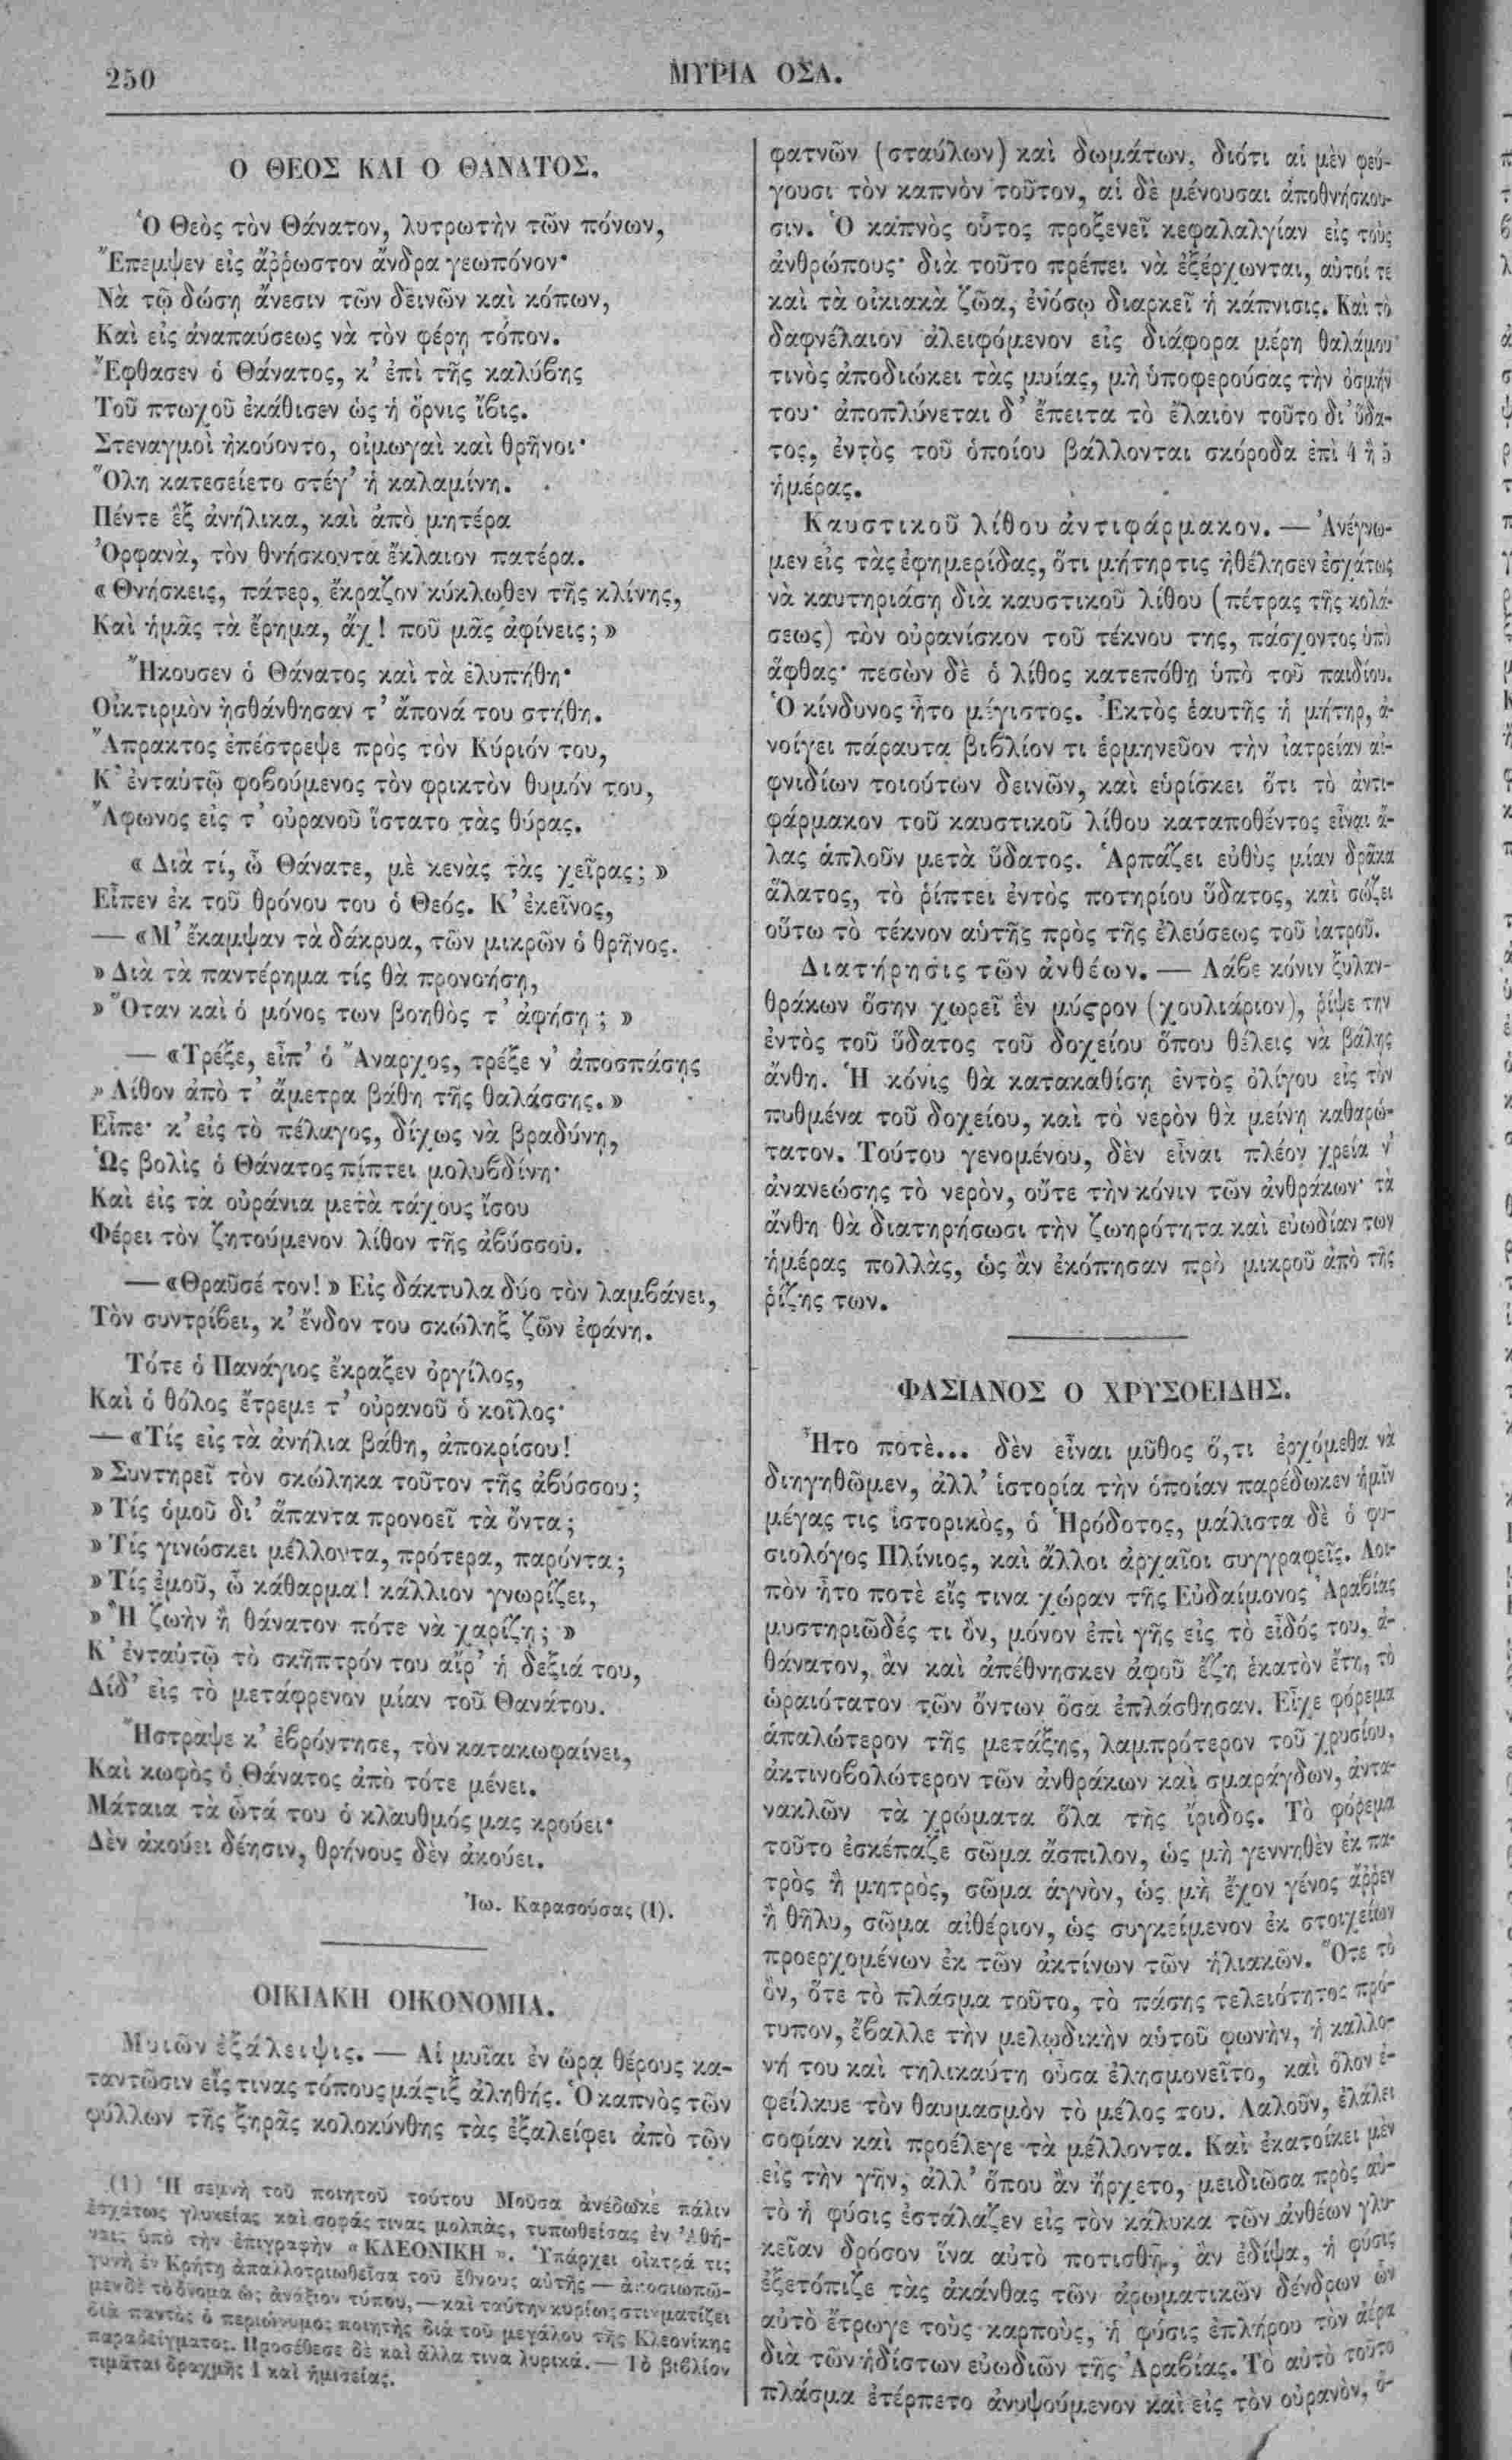 250
ΜΥΡΙΑ ΟΣΑ.
Ο ΘΕΟΣ ΚΑΙ Ο ΘΑΝΑΤΟΣ.
Ὁ Θεὸς τὸν Θάνατον, λυτρωτὴν τῶν πόνων,
Ἔπεμψεν εἰς ἄῤῥωστον ἄνδρα γεωπόνον·
Νὰ τῷ δώσῃ ἄνεσιν τῶν δεινῶν καὶ κόπων,
Καὶ εἰς ἀναπαύσεως νὰ τὸν φέρῃ τόπον.
Ἔφθασεν ὁ Θάνατος, κ’ ἐπὶ τῆς καλύβης
Τοῦ πτωχοῦ ἐκάθισεν ὡς ἡ ὄρνις ἴβις.
Στεναγμοὶ ἠκούοντο, οἰμωγαὶ καὶ θρῆνοι·
Ὅλη κατεσείετο στέγ’ ἡ καλαμίνη.
Πέντε ἓξ ἀνήλικα, καὶ ἀπὸ μητέρα
Ὀρφανὰ, τὸν θνήσκοντα ἔκλαιον πατέρα.
« Θνήσκεις, πάτερ, ἔκραζον κύκλωθεν τῆς κλίνης,
Καὶ ἡμᾶς τὰ ἔρημα, ἄχ! ποῦ μᾶς ἀφίνεις; »
Ἤκουσεν ὁ Θάνατος καὶ τὰ ἐλυπήθη·
Οἰκτιρμὸν ᾐσθάνθησαν τ’ ἄπονά του στήθη.
Ἄπρακτος ἐπέστρεψε πρὸς τὸν Κύριόν του,
Κ’ ἐνταὐτῷ φοβούμενος τὸν φρικτὸν θυμόν του,
Ἄφωνος εἰς τ’ οὐρανοῦ ἵστατο τὰς θύρας.
« Διὰ τί, ὦ Θάνατε, μὲ κενὰς τὰς χεῖρας; »
Εἶπεν ἐκ τοῦ θρόνου του ὁ Θεός. Κ’ ἐκεῖνος,
— «Μ’ ἔκαμψαν τὰ δάκρυα, τῶν μικρῶν ὁ θρῆνος.
» Διὰ τὰ παντέρημα τίς θὰ προνοήσῃ,
» Ὅταν καὶ ὁ μόνος των βοηθὸς τ’ ἀφήσῃ; »
— «Τρέξε, εἶπ’ ὁ Ἄναρχος, τρέξε ν’ ἀποσπάσῃς
» Λίθον ἀπὸ τ’ ἄμετρα βάθη τῆς θαλάσσης. »
Εἶπε· κ’ εἰς τὸ πέλαγος, δίχως νὰ βραδύνῃ,
Ὡς βολὶς ὁ Θάνατος πίπτει μολυβδίνη·
Καὶ εἰς τὰ οὐράνια μετὰ τάχους ἴσου
Φέρει τὸν ζητούμενον λίθον τῆς ἀβύσσου.
— «Θραῦσέ τον! » Εἰς δάκτυλα δύο τὸν λαμβάνει,
Τὸν συντρίβει, κ’ ἔνδον του σκώληξ ζῶν ἐφάνη.
Τότε ὁ Πανάγιος ἔκραξεν ὀργίλος,
Καὶ ὁ θόλος ἔτρεμε τ’ οὐρανοῦ ὁ κοῖλος·
— «Τίς εἰς τὰ ἀνήλια βάθη, ἀποκρίσου!
» Συντηρεῖ τὸν σκώληκα τοῦτον τῆς ἀβύσσου;
» Τίς ὁμοῦ δι’ ἅπαντα προνοεῖ τὰ ὄντα;
» Τίς γινώσκει μέλλοντα, πρότερα, παρόντα;
» Τίς ἐμοῦ, ὦ κάθαρμα! κάλλιον γνωρίζει,
» Ἢ ζωὴν ἢ θάνατον πότε νὰ χαρίζῃ; »
Κ’ ἐνταὐτῷ τὸ σκῆπτρόν του αἴρ’ ἡ δεξιά του,
Δίδ’ εἰς τὸ μετάφρενον μίαν τοῦ Θανάτου.
Ἤστραψε κ’ ἐβρόντησε, τὸν κατακωφαίνει,
Καὶ κωφὸς ὁ Θάνατος ἀπὸ τότε μένει.
Μάταια τὰ ὦτά του ὁ κλαυθμός μας κρούει·
Δὲν ἀκούει δέησιν, θρήνους δὲν ἀκούει.
Ἰω. Καρασούσας (1).
ΟΙΚΙΑΚΗ ΟΙΚΟΝΟΜΙΑ.
Μυιῶν ἐξάλειψις. — Αἱ μυῖαι ἐν ὥρᾳ θέρους κα-
ταντῶσιν εἴς τινας τόπους μάςιξ ἀληθής. Ὁ καπνὸς τῶν
φύλλων τῆς ξηρᾶς κολοκύνθης τὰς ἐξαλείφει ἀπὸ τῶν
(1) Ἡ σεμνὴ τοῦ ποιητοῦ τούτου Μοῦσα ἀνέδωκε πάλιν
ἐσχάτως γλυκείας καὶ σοφάς τινας μολπὰς, τυπωθείσας ἐν Ἀθή-
ναις ὑπὸ τὴν ἐπιγραφὴν « ΚΛΕΟΝΙΚΗ ». Ὑπάρχει οἰκτρά τις
γυνὴ ἐν Κρήτῃ ἀπαλλοτριωθεῖσα τοῦ ἔθνους αὑτῆς — ἀποσιωπῶ-
μεν δὲ τὸ ὄνομα ὡς ἀνάξιον τύπου, — καὶ ταύτην κυρίως στιγματίζει
διὰ παντὸς ὁ περιώνυμος ποιητὴς διὰ τοῦ μεγάλου τῆς Κλεονίκης
παραδείγματος. Προσέθεσε δὲ καὶ ἄλλα τινα λυρικά. — Τὸ βιβλίον
τιμᾶται δραχμῆς 1 καὶ ἡμισείας.
φατνῶν (σταύλων) καὶ δωμάτων, διότι αἱ μὲν φεύ-
γουσι τὸν καπνὸν τοῦτον, αἱ δὲ μένουσαι ἀποθνήσκου-
σιν. Ὁ καπνὸς οὗτος προξενεῖ κεφαλαλγίαν εἰς τοὺς
ἀνθρώπους· διὰ τοῦτο πρέπει νὰ ἐξέρχωνται, αὐτοί τε
καὶ τὰ οἰκιακὰ ζῶα, ἐνόσῳ διαρκεῖ ἡ κάπνισις. Καὶ τὸ
δαφνέλαιον ἀλειφόμενον εἰς διάφορα μέρη θαλάμου
τινὸς ἀποδιώκει τὰς μυίας, μὴ ὑποφερούσας τὴν ὀσμήν
του· ἀποπλύνεται δ’ ἔπειτα τὸ ἔλαιον τοῦτο δι’ ὕδα-
τος, ἐντὸς τοῦ ὁποίου βάλλονται σκόροδα ἐπὶ 4 ἢ 5
ἡμέρας.
Καυστικοῦ λίθου ἀντιφάρμακον. — Ἀνέγνω-
μεν εἰς τὰς ἐφημερίδας, ὅτι μήτηρ τις ἠθέλησεν ἐσχάτως
νὰ καυτηριάσῃ διὰ καυστικοῦ λίθου (πέτρας τῆς κολά-
σεως) τὸν οὐρανίσκον τοῦ τέκνου της, πάσχοντος ὑπὸ
ἄφθας· πεσὼν δὲ ὁ λίθος κατεπόθη ὑπὸ τοῦ παιδίου.
Ὁ κίνδυνος ἦτο μέγιστος. Ἐκτὸς ἑαυτῆς ἡ μήτηρ, ἀ-
νοίγει πάραυτα βιβλίον τι ἑρμηνεῦον τὴν ἰατρείαν αἰ-
φνιδίων τοιούτων δεινῶν, καὶ εὑρίσκει ὅτι τὸ ἀντι-
φάρμακον τοῦ καυστικοῦ λίθου καταποθέντος εἶναι ἅ-
λας ἁπλοῦν μετὰ ὕδατος. Ἁρπάζει εὐθὺς μίαν δράκα
ἅλατος, τὸ ῥίπτει ἐντὸς ποτηρίου ὕδατος, καὶ σώζει
οὕτω τὸ τέκνον αὑτῆς πρὸς τῆς ἐλεύσεως τοῦ ἰατροῦ.
Διατήρησις τῶν ἀνθέων. — Λάβε κόνιν ξυλαν-
θράκων ὅσην χωρεῖ ἓν μύςρον (χουλιάριον), ῥίψε την
ἐντὸς τοῦ ὕδατος τοῦ δοχείου ὅπου θέλεις νὰ βάλῃς
ἄνθη. Ἡ κόνις θὰ κατακαθίσῃ ἐντὸς ὀλίγου εἰς τὸν
πυθμένα τοῦ δοχείου, καὶ τὸ νερὸν θὰ μείνῃ καθαρώ-
τατον. Τούτου γενομένου, δὲν εἶναι πλέον χρεία ν’
ἀνανεώσῃς τὸ νερὸν, οὔτε τὴν κόνιν τῶν ἀνθράκων· τὰ
ἄνθη θὰ διατηρήσωσι τὴν ζωηρότητα καὶ εὐωδίαν των
ἡμέρας πολλὰς, ὡς ἂν ἐκόπησαν πρὸ μικροῦ ἀπὸ τῆς
ῥίζης των.
ΦΑΣΙΑΝΟΣ Ο ΧΡΥΣΟΕΙΔΗΣ.
Ἦτο ποτὲ... δὲν εἶναι μῦθος ὅ,τι ἐρχόμεθα νὰ
διηγηθῶμεν, ἀλλ’ ἱστορία τὴν ὁποίαν παρέδωκεν ἡμῖν
μέγας τις ἱστορικὸς, ὁ Ἡρόδοτος, μάλιστα δὲ ὁ φυ-
σιολόγος Πλίνιος, καὶ ἄλλοι ἀρχαῖοι συγγραφεῖς. Λοι-
πὸν ἦτο ποτὲ εἴς τινα χώραν τῆς Εὐδαίμονος Ἀραβίας
μυστηριῶδές τι ὂν, μόνον ἐπὶ γῆς εἰς τὸ εἶδός του, ἀ-
θάνατον, ἂν καὶ ἀπέθνησκεν ἀφοῦ ἔζη ἑκατὸν ἔτη, τὸ
ὡραιότατον τῶν ὄντων ὅσα ἐπλάσθησαν. Εἶχε φόρεμα
ἁπαλώτερον τῆς μετάξης, λαμπρότερον τοῦ χρυσίου,
ἀκτινοβολώτερον τῶν ἀνθράκων καὶ σμαράγδων, ἀντα-
νακλῶν τὰ χρώματα ὅλα τῆς ἴριδος. Τὸ φόρεμα
τοῦτο ἐσκέπαζε σῶμα ἄσπιλον, ὡς μὴ γεννηθὲν ἐκ πα-
τρὸς ἢ μητρὸς, σῶμα ἁγνὸν, ὡς μὴ ἔχον γένος ἄῤῥεν
ἢ θῆλυ, σῶμα αἰθέριον, ὡς συγκείμενον ἐκ στοιχείων
προερχομένων ἐκ τῶν ἀκτίνων τῶν ἡλιακῶν. Ὅτε τὸ
ὂν, ὅτε τὸ πλάσμα τοῦτο, τὸ πάσης τελειότητος πρό-
τυπον, ἔβαλλε τὴν μελῳδικὴν αὑτοῦ φωνὴν, ἡ καλλο-
νή του καὶ τηλικαύτη οὖσα ἐλησμονεῖτο, καὶ ὅλον ἐ-
φείλκυε τὸν θαυμασμὸν τὸ μέλος του. Λαλοῦν, ἐλάλει
σοφίαν καὶ προέλεγε τὰ μέλλοντα. Καὶ ἐκατοίκει μὲν
εἰς τὴν γῆν, ἀλλ’ ὅπου ἂν ἤρχετο, μειδιῶσα πρὸς αὐ-
τὸ ἡ φύσις ἐστάλαζεν εἰς τὸν κάλυκα τῶν ἀνθέων γλυ-
κεῖαν δρόσον ἵνα αὐτὸ ποτισθῇ, ἂν ἐδίψα, ἡ φύσις
ἐξετόπιζε τὰς ἀκάνθας τῶν ἀρωματικῶν δένδρων ὧν
αὐτὸ ἔτρωγε τοὺς καρποὺς, ἡ φύσις ἐπλήρου τὸν ἀέρα
διὰ τῶν ἡδίστων εὐωδιῶν τῆς Ἀραβίας. Τὸ αὐτὸ τοῦτο
πλάσμα ἐτέρπετο ἀνυψούμενον καὶ εἰς τὸν οὐρανὸν, ὁ-